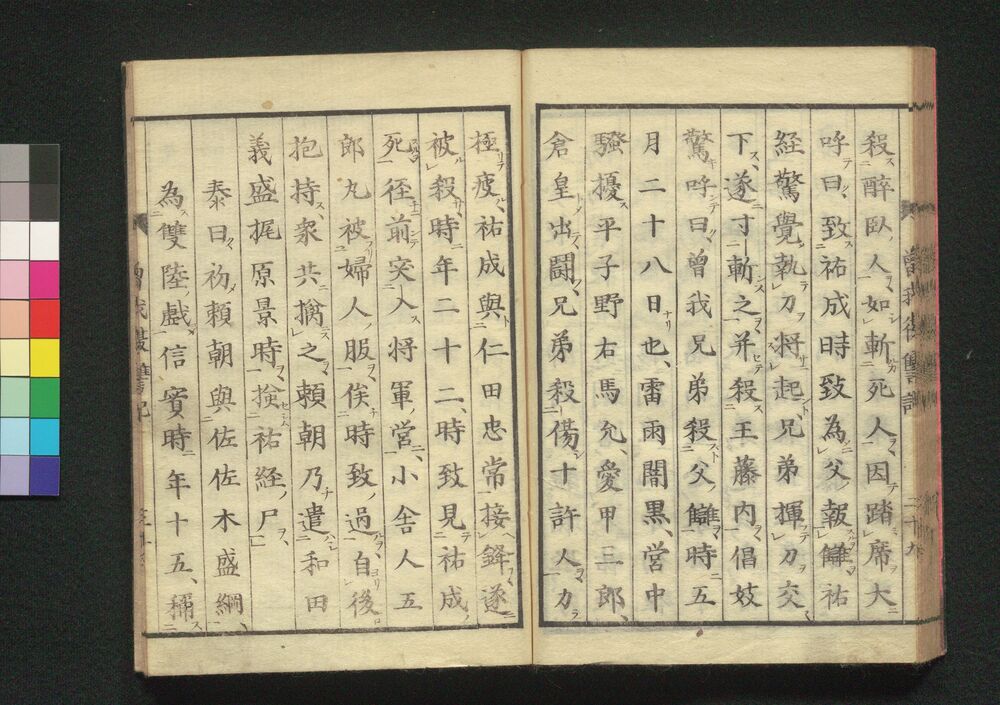 殺醉臥人如斬死人因踏席大
呼曰致祐成時致為父報讎祐
経驚覺執刀將起兄弟揮刀交
下遂寸斬之并殺王藤内倡妓
驚呼曰曾我兄弟殺父讎時五
月二十八日也雷雨闇黒營中
騷擾平子野右馬允愛甲三郎
倉皇出鬪兄弟殺傷十許人力
極疲祐成與仁田忠常接鋒遂
被殺時年二十二時致見祐成
死徑前突入將軍營小舍人五
郎丸被婦人服俟時致過自後
抱持衆共擒之頼朝乃遣和田
義盛梶原景時撿祐経尸
泰曰初頼朝與佐佐木盛綱
為雙陸戲信實時年十五稱